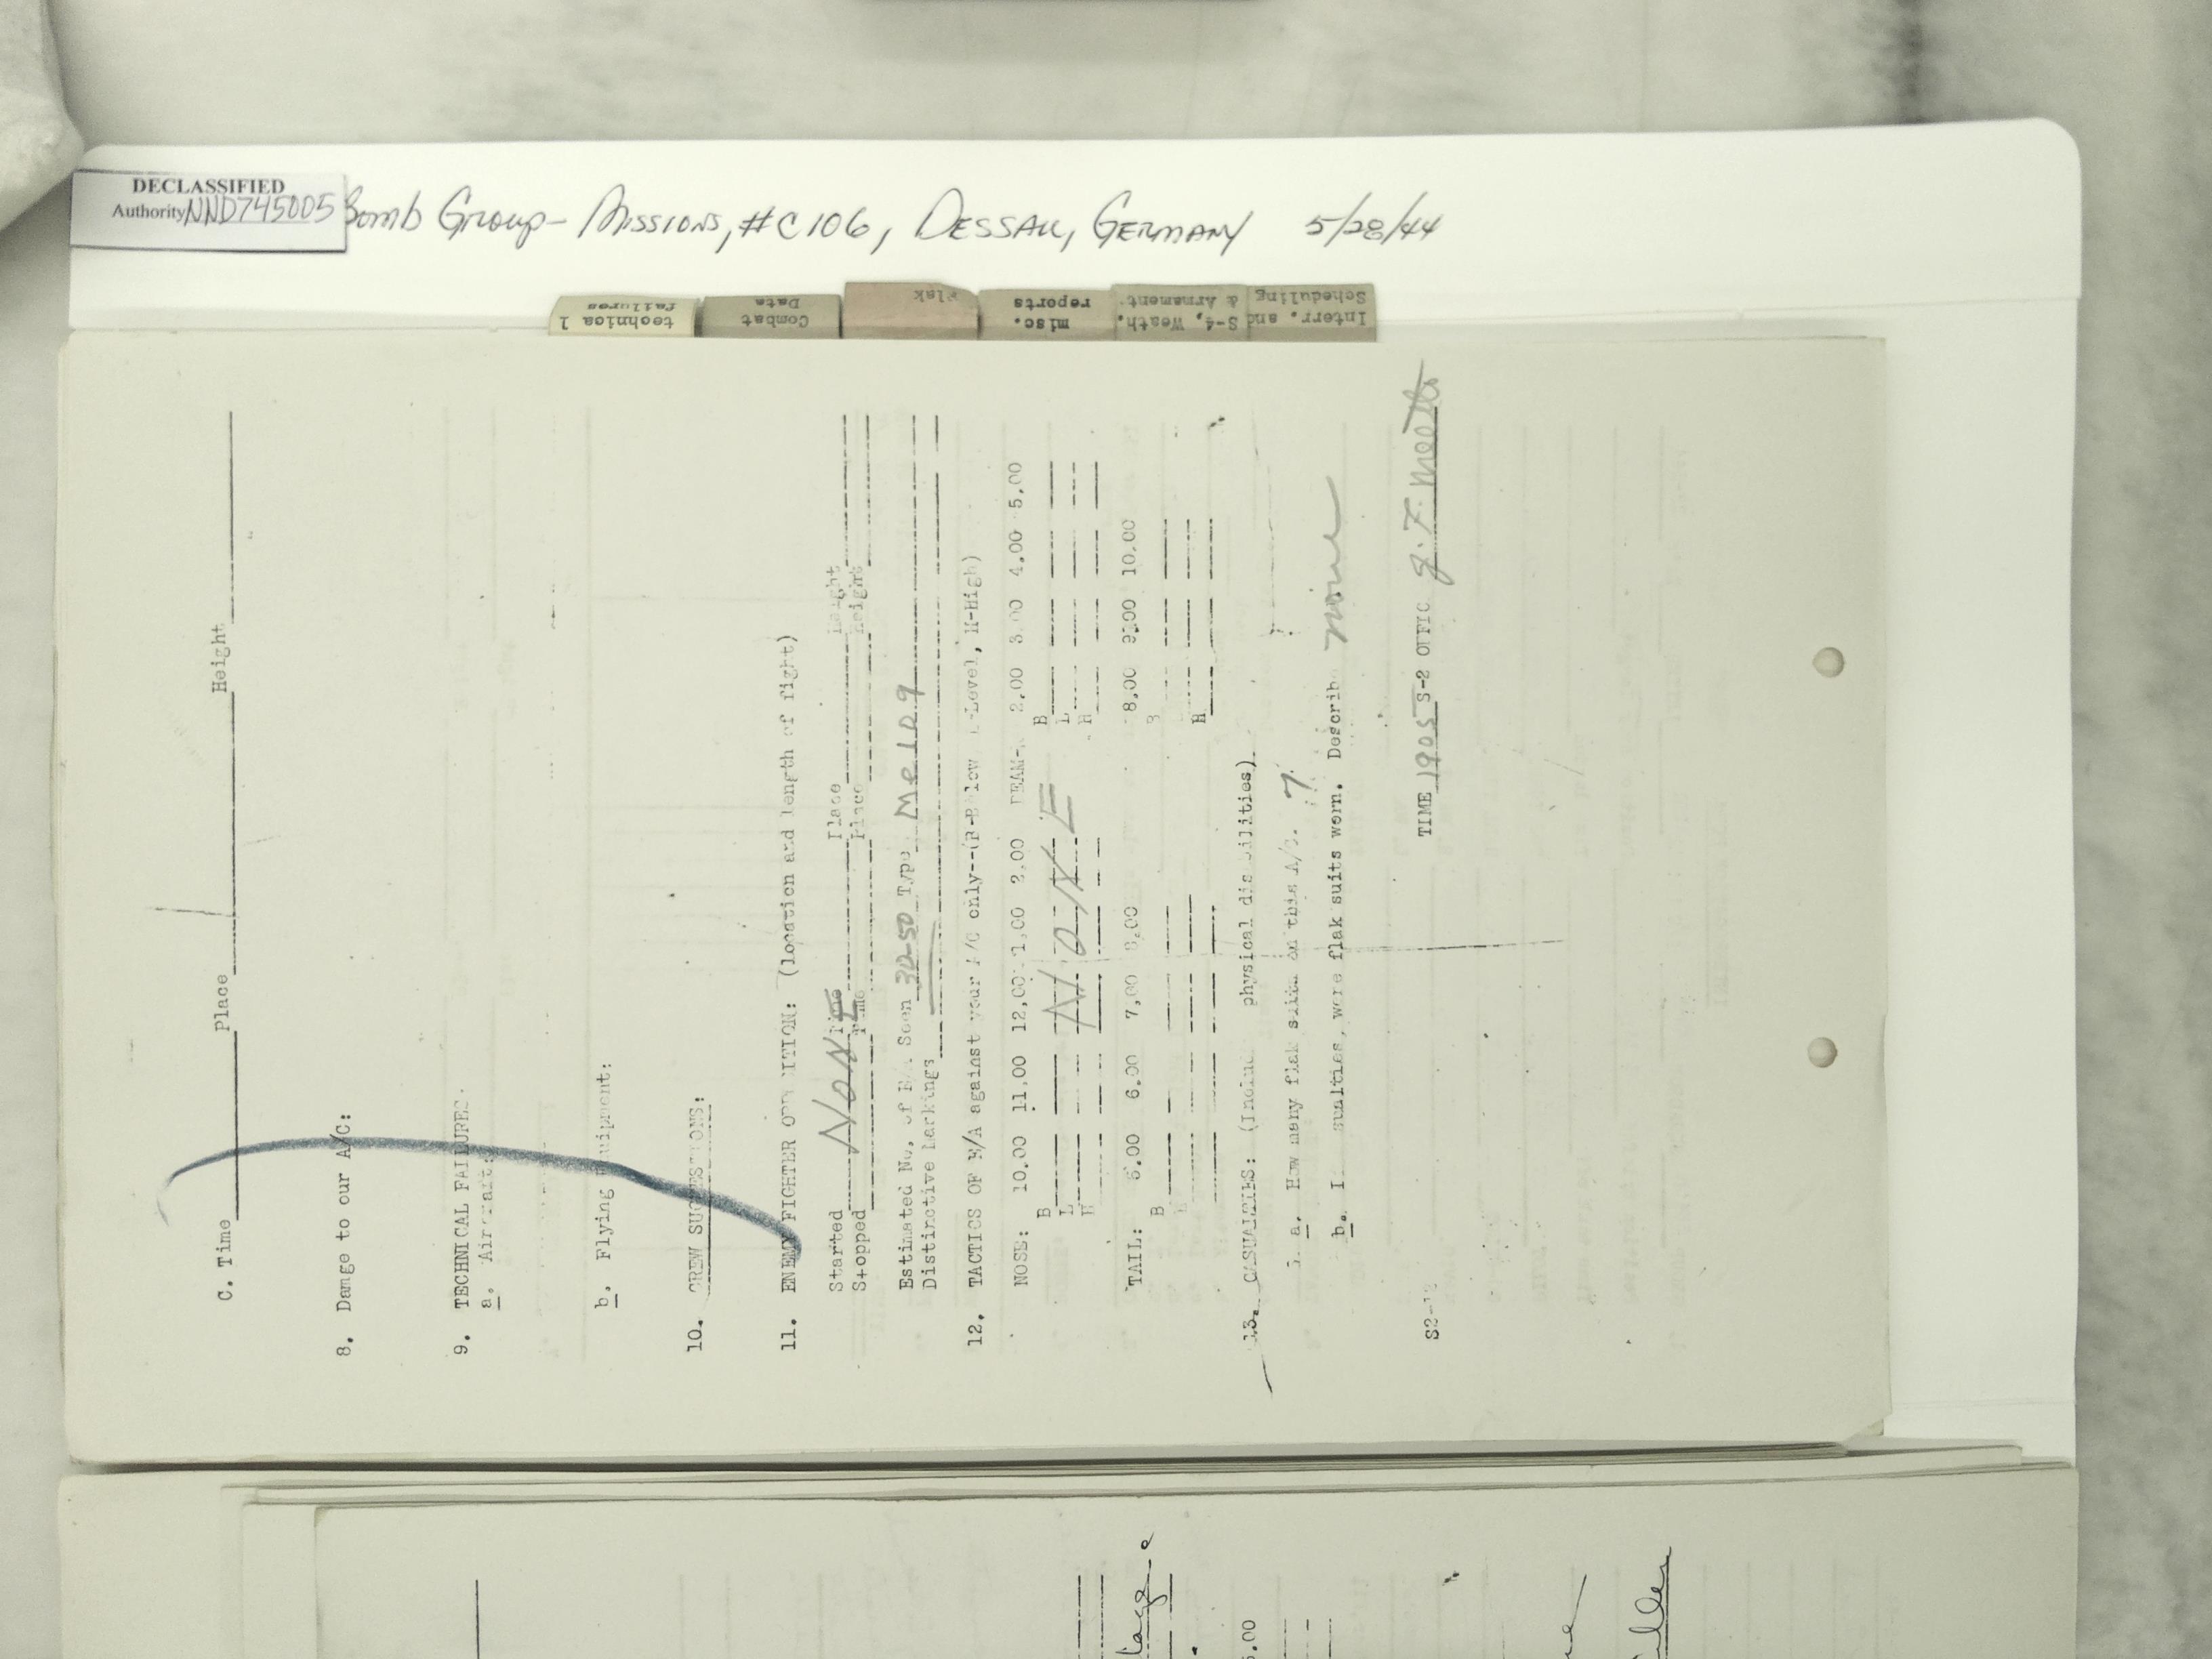 DECLASSIFIED
Authority NND745005
Bomb Group - Missions, #C106, DESSAU, GERMANY 5/28/44
technical failures
Combat Data
Flak
misc. reports
S-4, Weath. & Armament
Interr. and Scheduling
C. Time Place Height
8. Damage to our A/C:
9. TECHNICAL FAILURES.
a. Aircraft:
b. Flying Equipment:
10. CREW SUGGESTIONS:
11. ENEMY FIGHTER OPPOSITION: (location and length of fight)
Started NONE Time Place Height
Stopped Time Place Height
Estimated No. of E/A Seen 30-50 Type Me109
Distinctive Markings
12. TACTICS OF E/A against your A/C only--(B-Below L-Level, H-High)
NOSE: 10.00 11.00 12.00 1.00 2.00 BEAM- 2.00 3.00 4.00 5.00
B B
L NONE L
H H
TAIL: 5.00 6.00 7.00 8.00 9.00 10.00
B B
H
13. CASUALTIES: (Include physical disabilities)
a. How many flak suits on this A/C. 7
b. If casualties, were flak suits worn. Describe none
TIME 1905 S-2 OFFIC
S2-
5.00